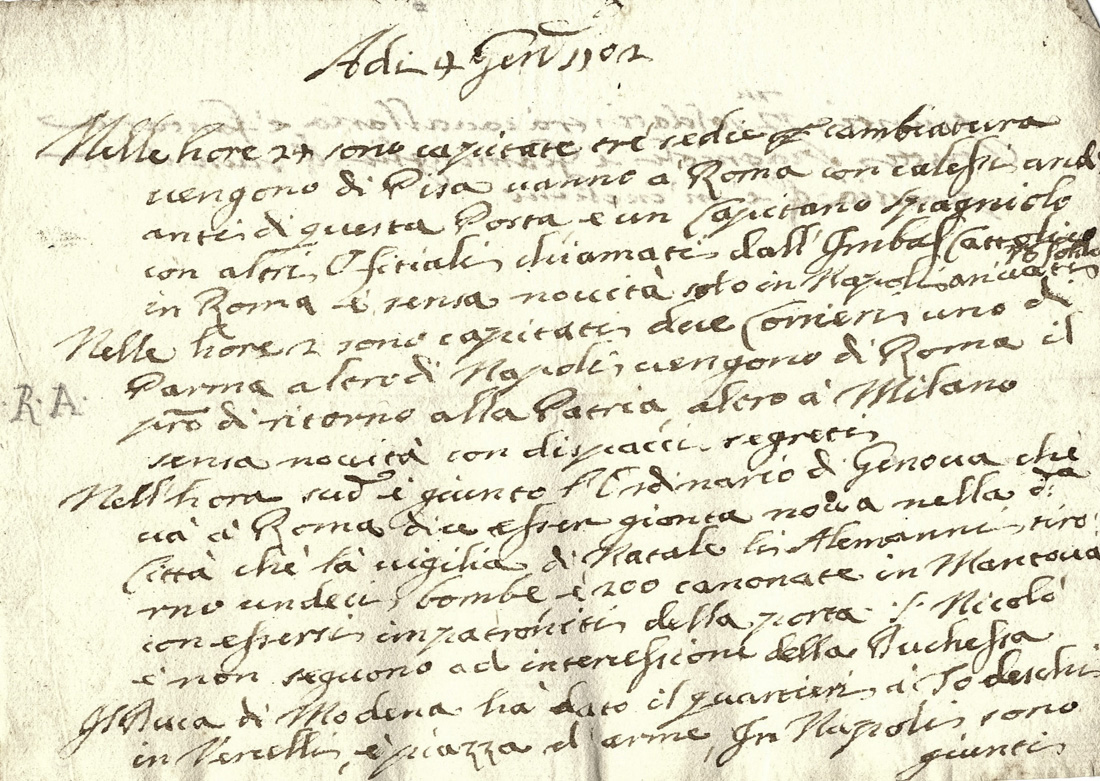 Adi 4 Genº 1702
Nelle hore 24 sono capitate tré sedie p cambiatura
vengono di Pisa vanno á Roma con calessi andi
anti di questa Posta e un Capitano spagniolo
con altri Ofitiali chiamati dall' Imbas Cattolico
in Roma é sensa novità solo in Napoli arivati
Nelle hore 2 sono capitati due Corrieri uno di
Parma altro di Napoli vengono di Roma il
pro di ritorno alla Patria altro á Milano
R.A.
sensa novità con dispacci segreti
Nell' hora sudª é giunto l'Ordinario di Genova ché
và á Roma dice esser gionta nova nella dª
Città ché la vigilia di Natale li Alemanni tiro
rno undeci bombe é 200 canonate in Mantova
con essersi impatroniti della porta S. Nicolò
é non seguono ad intercessione della Duchessa
Il Duca di Modena há dato il quartieri á Todeschi
in Vercelli, é piazza d'arme, In Napoli sono
giunti